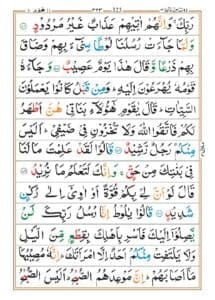 ٣٣٣
رَبِّكَ ۚ وَاِنَّهُمْ اٰتِيْهِمْ عَذَابٌ غَيْرُ مَرْدُوْدٍ
وَلَمَّا جَآءَتْ رُسُلُنَا لُوْطًا سِيْٓءَ بِهِمْ وَضَاقَ
بِهِمْ ذَرْعًا وَّقَالَ هٰذَا يَوْمٌ عَصِيْبٌ وَجَآءَهٗ
قَوْمُهٗ يُهْرَعُوْنَ اِلَيْهِ ؕ وَمِنْ قَبْلُ كَانُوْا يَعْمَلُوْنَ
السَّيِّاٰتِ ؕ قَالَ يٰقَوْمِ هٰٓؤُلَآءِ بَنَاتِيْ هُنَّ اَطْهَرُ
لَكُمْ فَاتَّقُوا اللّٰهَ وَلَا تُخْزُوْنِ فِيْ ضَيْفِيْ ؕ اَلَيْسَ
مِنْكُمْ رَجُلٌ رَّشِيْدٌ قَالُوْا لَقَدْ عَلِمْتَ مَا لَنَا
فِيْ بَنٰتِكَ مِنْ حَقٍّ ۚ وَاِنَّكَ لَتَعْلَمُ مَا نُرِيْدُ
قَالَ لَوْ اَنَّ لِيْ بِكُمْ قُوَّةً اَوْ اٰوِيْٓ اِلٰى رُكْنٍ
شَدِيْدٍ قَالُوْا يٰلُوْطُ اِنَّا رُسُلُ رَبِّكَ لَنْ
يَّصِلُوْٓا اِلَيْكَ فَاَسْرِ بِاَهْلِكَ بِقِطْعٍ مِّنَ الَّيْلِ
وَلَا يَلْتَفِتْ مِنْكُمْ اَحَدٌ اِلَّا امْرَاَتَكَ ؕ اِنَّهٗ مُصِيْبُهَا
مَآ اَصَابَهُمْ ؕ اِنَّ مَوْعِدَهُمُ الصُّبْحُ ؕ اَلَيْسَ الصُّبْحُ